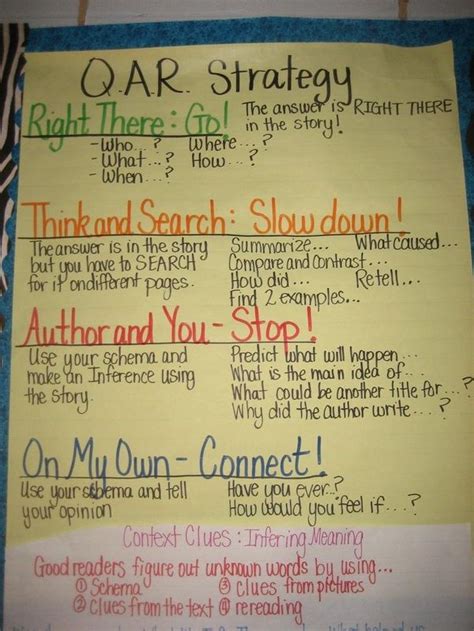 Q.A.R. Strategy
Right There: Go!
The answer is RIGHT THERE
in the story!
- Who...? Where...?
- What...? How...?
- When...?
Think and Search: Slow down!
The answer is in the story
but you have to SEARCH
for it on different pages.
Summarize... What caused...
Compare and contrast...
How did... Retell...
Find 2 examples...
Author and You - Stop!
Use your schema and
make an Inference using
the story.
Predict what will happen...
What is the main idea of...
What could be another title for...?
Why did the author write...?
On My Own - Connect!
Use your schema and tell
your opinion
Have you ever..?
How would you feel if...?
Context Clues: Infering Meaning
Good readers figure out unknown words by using...
① Schema ③ clues from pictures
② clues from the text ④ rereading